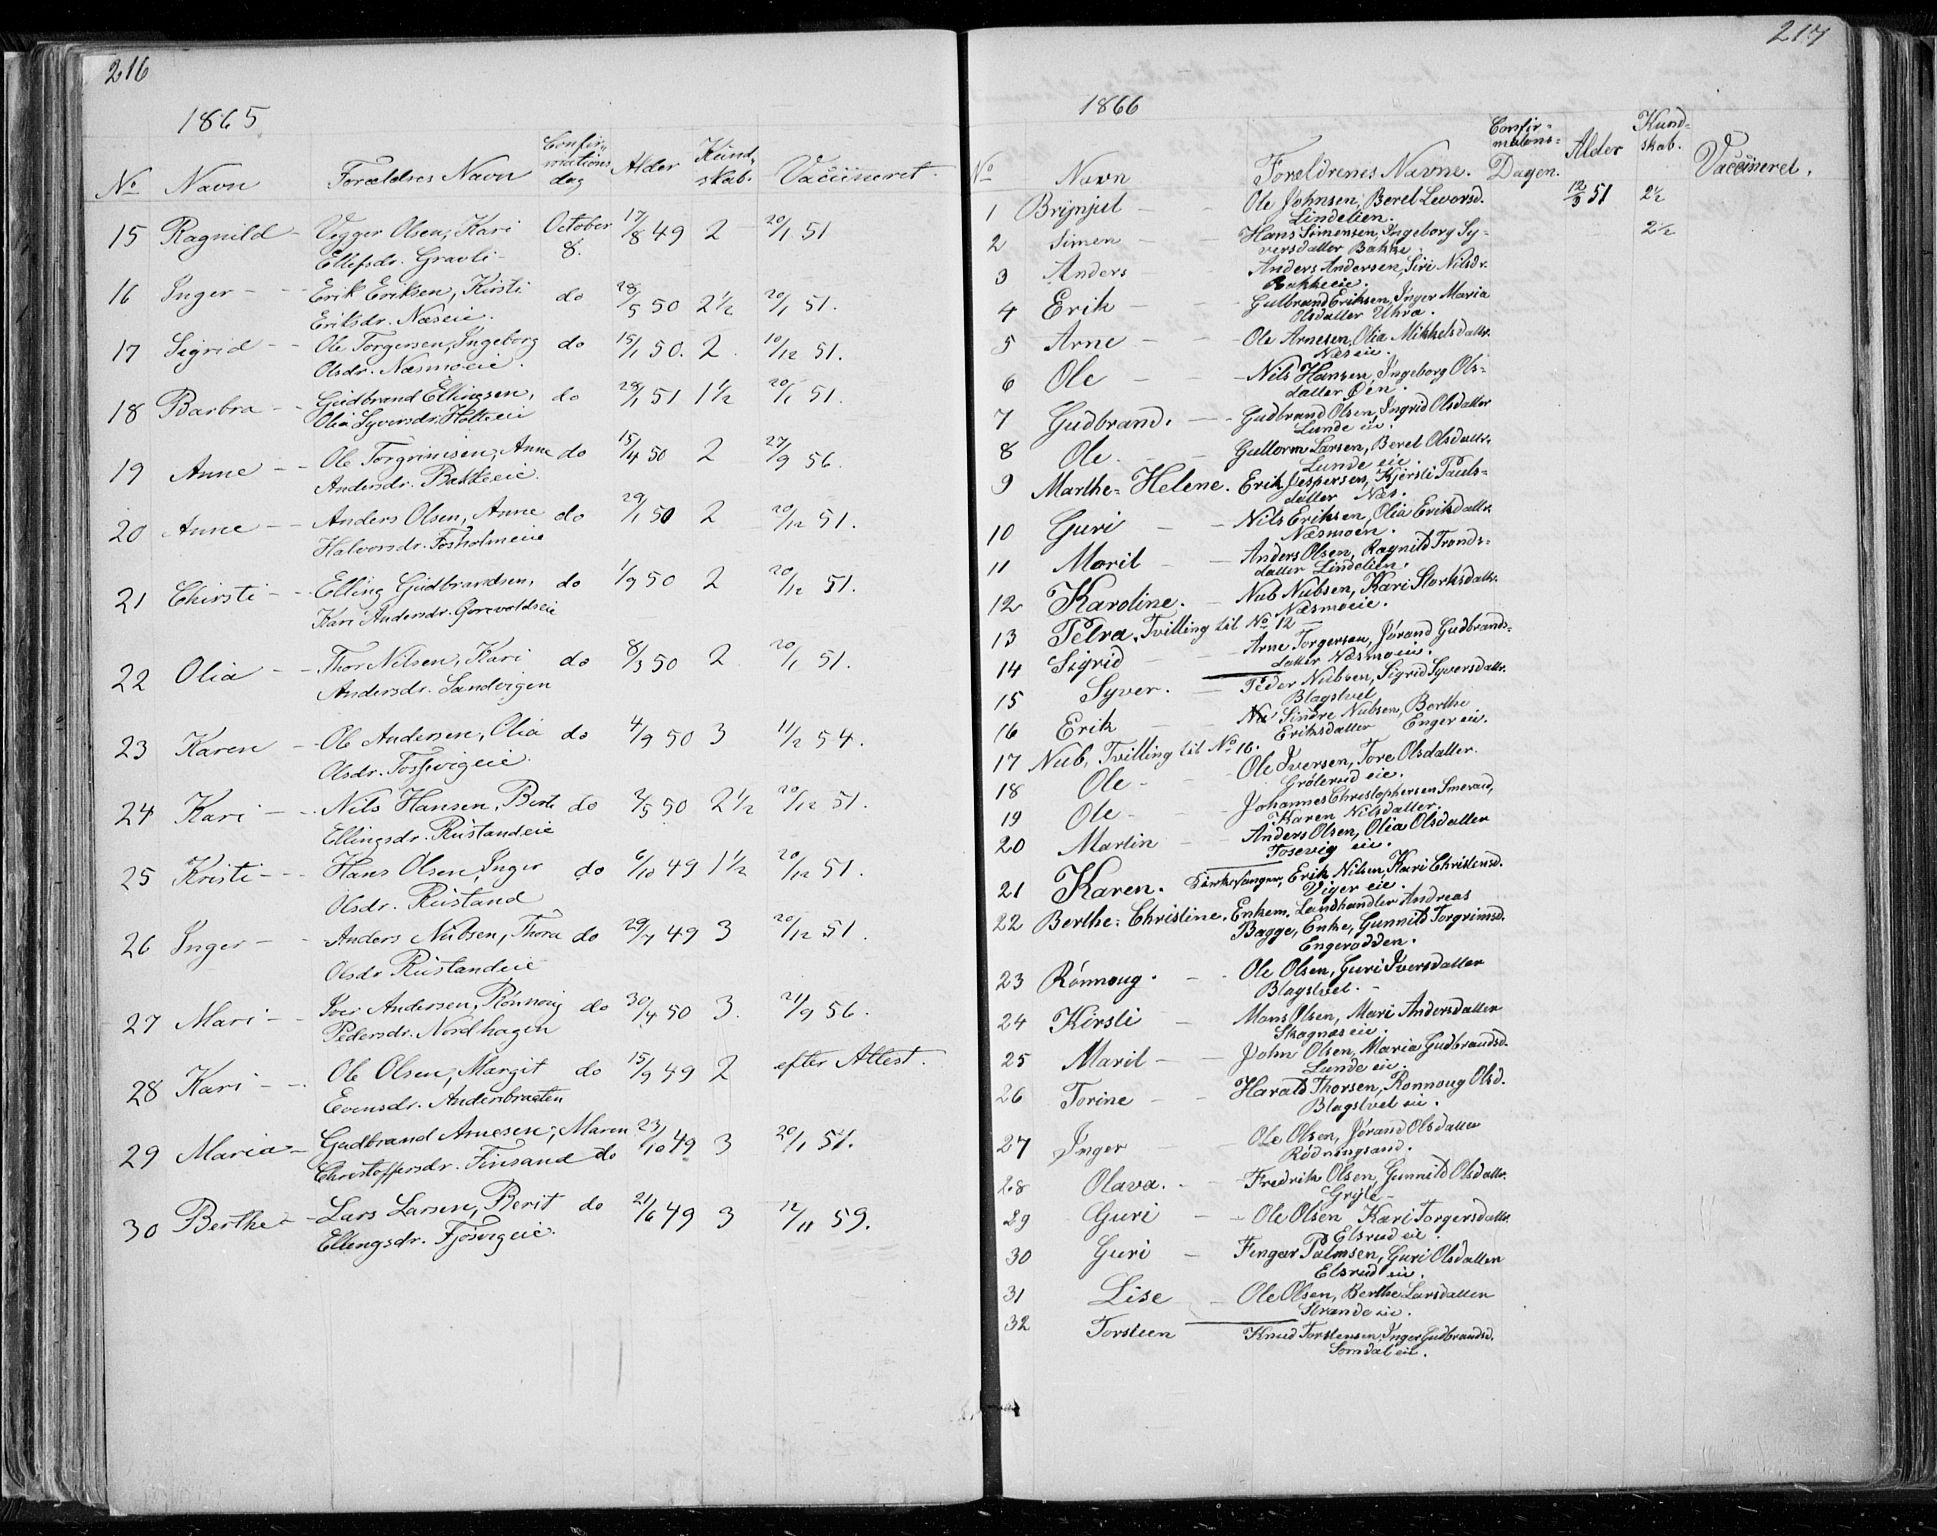 216
1865
No Navn Forældres Navn Confir-mations dag Alder Kund-skab. Vacciineret
15 Ragnild - Vegger Olsen, Kari October 17/8 49 2 20/1 51
Ellefsdr. Gravli - 8.
16 Inger - - Erik Eriksen, Kirsti do 28/5 50 2 1/2 20/1 51.
Eriksdr. Næseie.
17 Sigrid - - Ole Torgersen, Ingeborg do 15/1 50. 2. 10/12 51.
Olsdr. Næsmoeie.
18 Barbra - - Gudbrand Ellingsen, do 29/1 51 1 1/2 20/1 51.
Olia Syversdr. Holteeie
19 Anne - - Ole Torgrimsen, Anne do 15/4 50 2 27/9 56.
Andersdr. Bakkeeie.
20 Anne - - Anders Olsen, Anne do 29/1 50 2 20/12 51.
Halvorsdr. Fosholmeie
21 Chirsti - - Elling Gudbrandsen, do 1/9 50 2 20/12 51.
Kari Andersdr. Gorevoldseie
22 Olia - - Thor Nilsen, Kari do 8/3 50 2 20/1 51.
Andersdr. Sandvigen
23 Karen - Ole Andersen, Olia do 4/9 50 3 11/2 54.
Olsdr. Tosevigeie.
24 Kari - - Nils Hansen, Berte do 2/5 50 2 1/2 20/12 51.
Ellingsdr. Rustandeie
25 Kristi - - Hans Olsen, Inger do 6/10 49 1 1/2 20/12 51.
Olsdr. Rustand
26 Inger - - Anders Nubsen, Thora do 29/7 49 3 20/12 51.
Olsdr Rustandeie
27 Mari - - Iver Andersen, Rønnoug do 30/4 50 3. 21/9 56.
Pedersdr. Nordhagen
28 Kari - - Ole Olsen, Margit do 15/9 49 2 efter Attest.
Evensdr. Andersbraaten
29 Maria - Gudbrand Arnesen, Maren 23/10 49 3 20/1 51.
Christoffersdr. Finsand do
30 Berthe - Lars Larsen, Berit do 21/6 49 3 12/11 59.
Ellingsdr. Fjøsvigeie.
217
1866
No Navn Forældrenes Navne. Confir-mations-Dagen. Alder Kund-skab. Vaccineret.
1 Brynjul - - Ole Johnsen, Beret Levorsd. 12/3 51 2 1/2
Lindelien.
2 Simen - - Hans Simensen, Ingeborg Sy- 2 1/2
versdatter Bakke.
3 Anders - - Anders Andersen, Siri Nilsdr.
Bakkeeie.
4 Erik - - Gulbrand Eriksen, Inger Maria
Olsdatter Uhra.
5 Arne - - Ole Arnesen, Olia Mikkelsdattr.
Næseie.
6 Ole - - Nils Hansen, Ingeborg Ols-
datter Øen.
7 Gudbrand. - - Gudbrand Olsen, Ingrid Olsdatter
Lunde eie.
8 Ole - - Gullorm Larsen, Beret Olsdattr.
Lunde eie.
9 Marthe-Helene. Erik Jespersen, Kjersti Pauls-
datter Næs.
10 Guri - - Nils Eriksen, Olia Eriksdattr.
Næsmoen.
11 Marit - - Anders Olsen, Ragnild Tronds-
datter Lindelien.
12 Karoline. - Nub Nubsen, Kari Storksdattr.
Næsmoeie.
13 Petra, Tvilling til No 12 -
14 Sigrid - Arne Torgersen, Jørand Gudbrands-
datter Næsmoeie.
15 Syver. - Peder Nubsen, Sigrid Syversdattr.
Blagstvet
16 Erik - - Sindre Nubsen, Berthe
Eriksdatter Enger eie.
17 Nub, Tvilling til No 16.
18 Ole - - Ole Iversen, Tore Olsdatter.
Grølerud eie.
19 Ole - - Johannes Christophersen Smerud,
Karen Nilsdatter.
20 Martin - - Anders Olsen, Olia Olsdatter
Tosevig eie.
21 Karen. Kirkesanger, Erik Nilsen, Kari Christensd.
Viger eie.
22 Berthe-Christine. Enkem. Landhandler Andreas
Bagge, Enke, Gunnild Torgrimsd.
Engerodden.
23 Rønnoug. - - Ole Olsen, Guri Iversdatter
Blagstvet. -
24 Kirsti - Mons Olsen, Mari Andersdatter
Skagnæs eie.
25 Marit - - John Olsen, Maria Gudbrandsd.
Lunde eie.
26 Torine - - Harald Thorsen, Rønnoug Olsd.
Blagstvet eie.
27 Inger - - Ole Olsen, Jørand Olsdatter
Rødningsand.
28 Olava. - - Fredrik Olsen, Gunnild Olsdattr.
Gryte -
29 Guri - - Ole Olsen Kari Torgersdattr.
Elsrud eie.
30 Guri - Fingar Palmsen, Guri Olsdatter
Elsrud eie.
31 Lise - Ole Olsen, Berthe Larsdatter
Strande eie.
32 Torsteen Knud Torstensen, Inger Gudbrandsd.
Somdal eie.